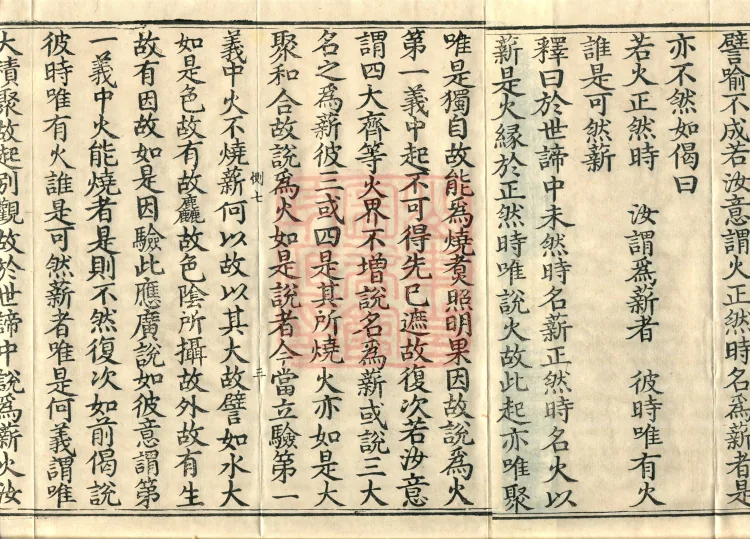 譬喻不成若汝意謂火正然時名爲薪者是
亦不然如偈曰
若火正然時　汝謂爲薪者　彼時唯有火
誰是可然薪
釋曰於世諦中未然時名薪正然時名火以
薪是火緣於正然時唯說火故此起亦唯聚
唯是獨自故能爲燒煑照明果因故說爲火
第一義中起不可得先已遮故復次若汝意
謂四大齊等火界不增說名爲薪或說三大
名之爲薪彼三或四是其所燒火亦如是大
聚和合故說爲火如是說者今當立驗第一
側七　三
義中火不燒薪何以故以其大故譬如水大
如是色故有故麤故色陰所攝故外故有生
故有因故如是因驗此應廣說如彼意謂第
一義中火能燒者是則不然復次如前偈說
彼時唯有火誰是可然薪者唯是何義謂唯
大積聚故起別觀故於世諦中說爲薪火汝